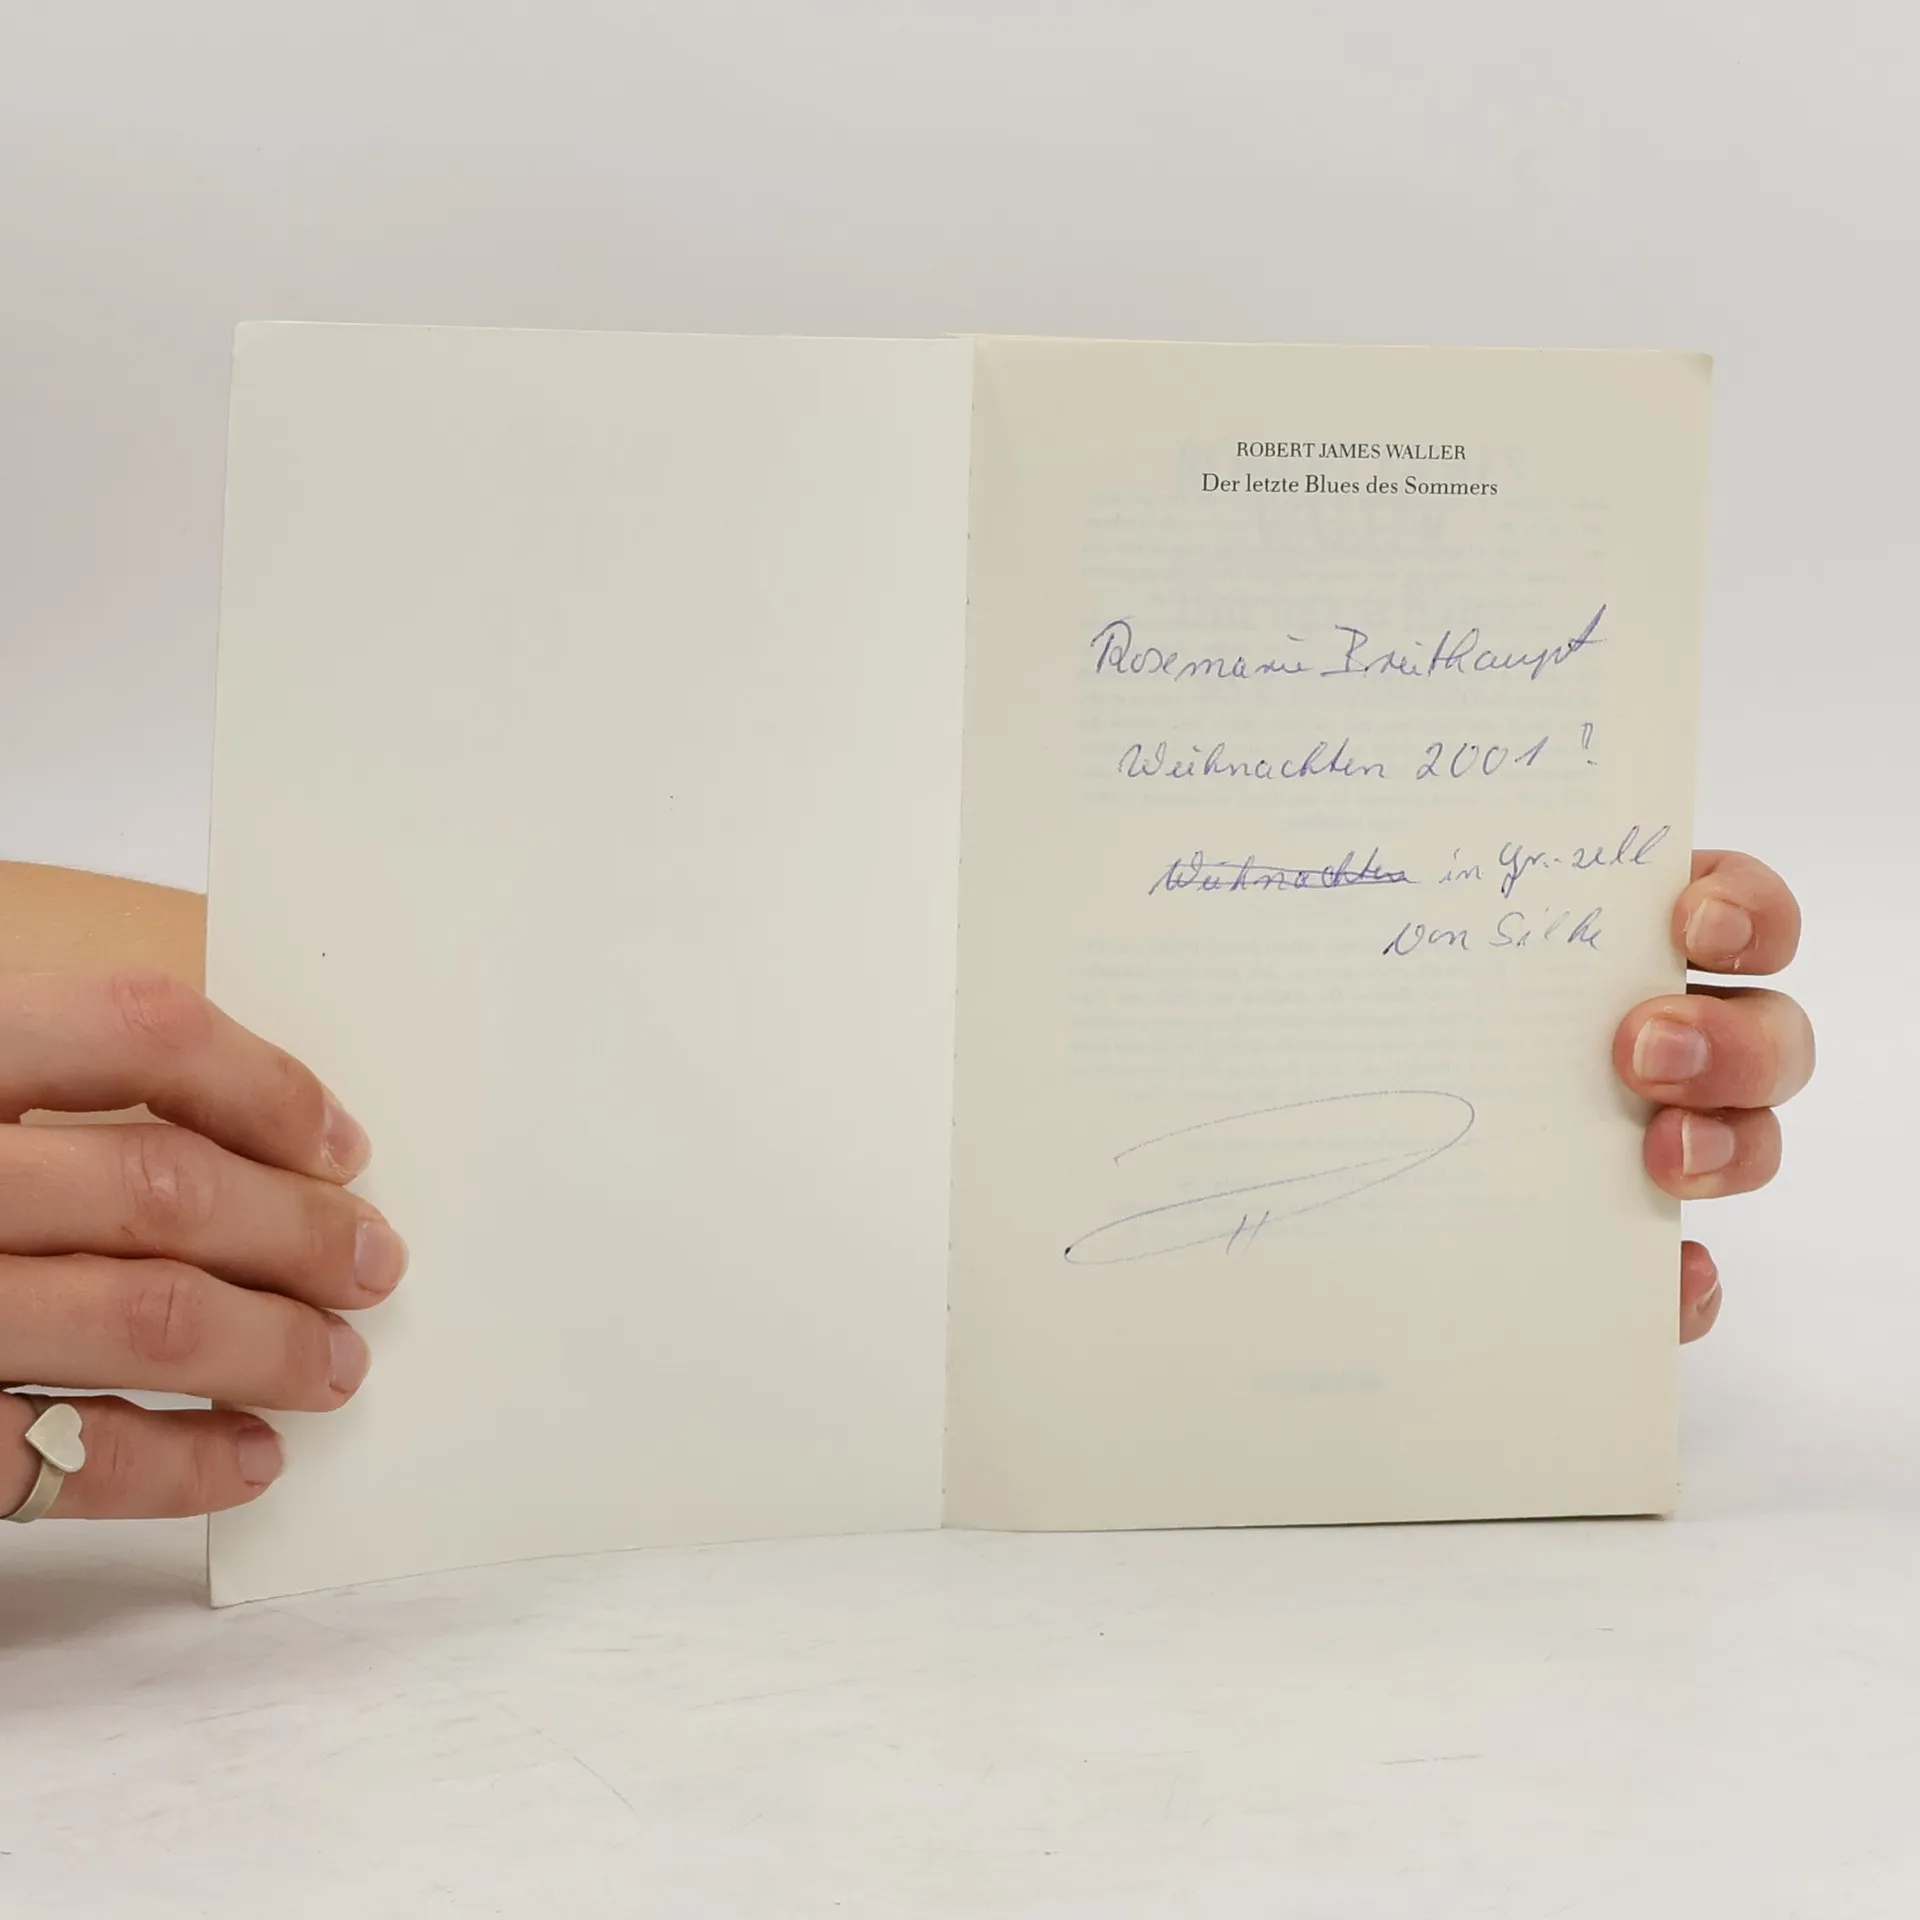 ROBERT JAMES WALLER
Der letzte Blues des Sommers
Rosemarie Breithaupt
Weihnachten 2001!
Weihnachten in Gr.-zell
von Silke